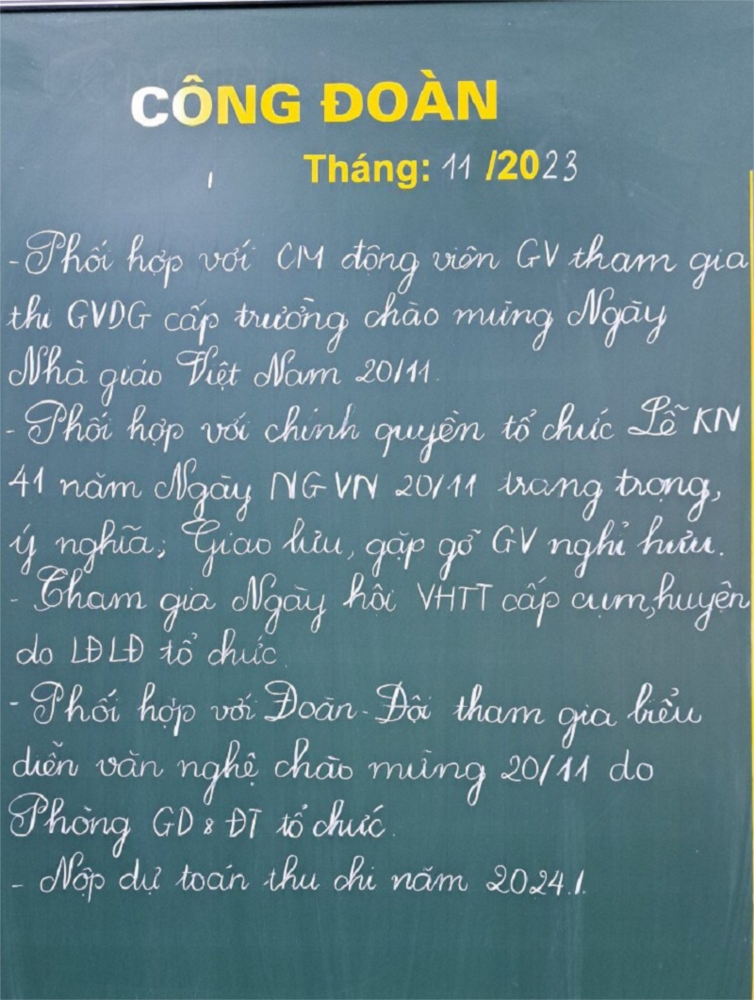 CÔNG ĐOÀN
Tháng: 11 /2023
- Phối hợp với CM động viên GV tham gia
thi GVDG cấp trường chào mừng Ngày
Nhà giáo Việt Nam 20/11.
- Phối hợp với chính quyền tổ chức Lễ KN
41 năm Ngày NGVN 20/11 trang trọng,
ý nghĩa; Giao lưu, gặp gỡ GV nghỉ hưu.
- Tham gia Ngày hội VHTT cấp cụm, huyện
do LĐLĐ tổ chức.
- Phối hợp với Đoàn - Đội tham gia biểu
diễn văn nghệ chào mừng 20/11 do
Phòng GD & ĐT tổ chức.
- Nộp dự toán thu chi năm 2024./.